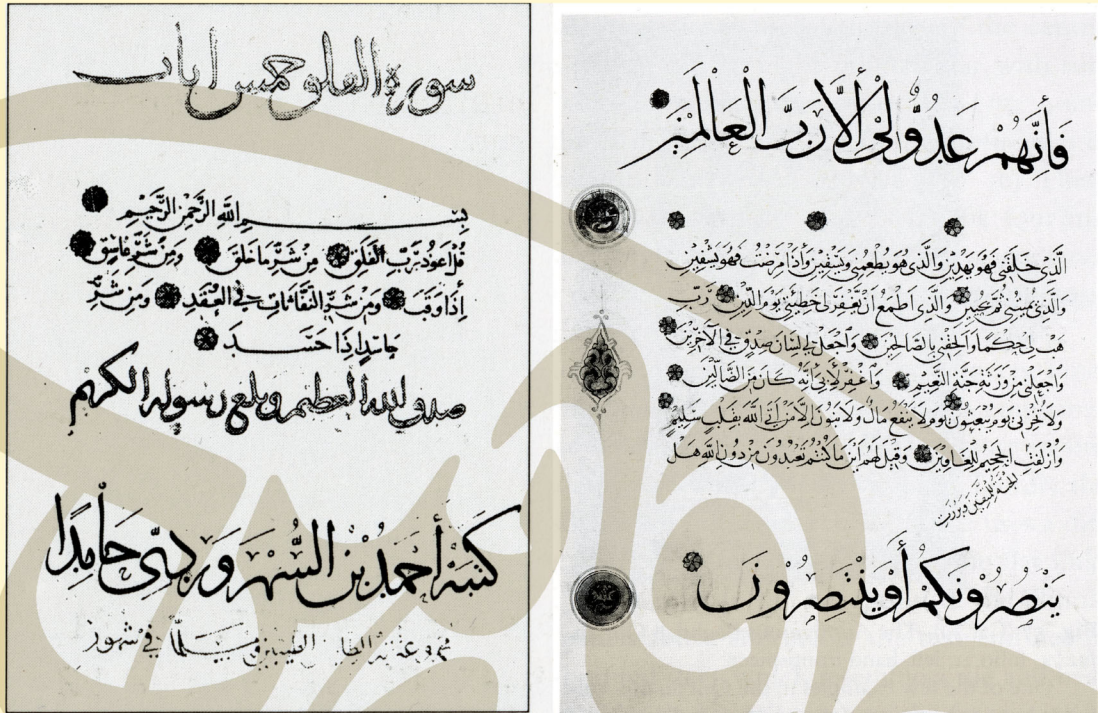 فَأِنَّهُمْ عَدُوٌّ لِىْ أِلَّا رَبَّ الْعَالَمِيْنَ
الَّذِى خَلَقَنِى فَهُوَ يَهْدِيْنِ وَالَّذِى هُوَ يُطْعِمُنِى وَيَسْقِيْنِ وَأِذَا مَرِضْتُ فَهُوَ يَشْفِيْنِ
وَالَّذِى يُمِيْتُنِى ثُمَّ يُحْيِيْنِ وَالَّذِى اَطْمَعُ اَنْ يَغْفِرَ لِى خَطِيْئَتِى يَوْمَ الدِّيْنِ رَبِّ
هَبْ لِى حُكْمًا وَاَلْحِقْنِى بِالصَّالِحِيْنَ وَاجْعَلْ لِى لِسَانَ صِدْقٍ فِى الْآخِرِيْنَ
وَاجْعَلْنِى مِنْ وَرَثَةِ جَنَّةِ النَّعِيْمِ وَاغْفِرْ لِأَبِى اِنَّهُ كَانَ مِنَ الضَّالِّيْنَ
وَلَا تُخْزِنِى يَوْمَ يُبْعَثُوْنَ يَوْمَ لَا يَنْفَعُ مَالٌ وَلَا بَنُوْنَ اِلَّا مَنْ اَتَى اللّٰهَ بِقَلْبٍ سَلِيْمٍ
وَاُزْلِفَتِ الْجَحِيْمُ لِلْغَاوِيْنَ وَقِيْلَ لَهُمْ اَيْنَ مَا كُنْتُمْ تَعْبُدُوْنَ مِنْ دُوْنِ اللّٰهِ هَلْ
الجنة للمتقين وبرزت
يَنْصُرُوْنَكُمْ أَوْ يَنْتَصِرُوْنَ
سورة الفلق خمس ايات
بِسْمِ اللّٰهِ الرَّحْمٰنِ الرَّحِيْمِ
قُلْ اَعُوْذُ بِرَبِّ الْفَلَقِ مِنْ شَرِّ مَا خَلَقَ وَمِنْ شَرِّ غَاسِقٍ
إِذَا وَقَبَ وَمِنْ شَرِّ النَّفَّاثَاتِ فِى الْعُقَدِ وَمِنْ شَرِّ
حَاسِدٍ اِذَا حَسَدَ
صدق الله العظيم وبلغ رسوله الكريم
كتبه أحمد بن السُّهْرَوَرْدِىّ حَامِدًا